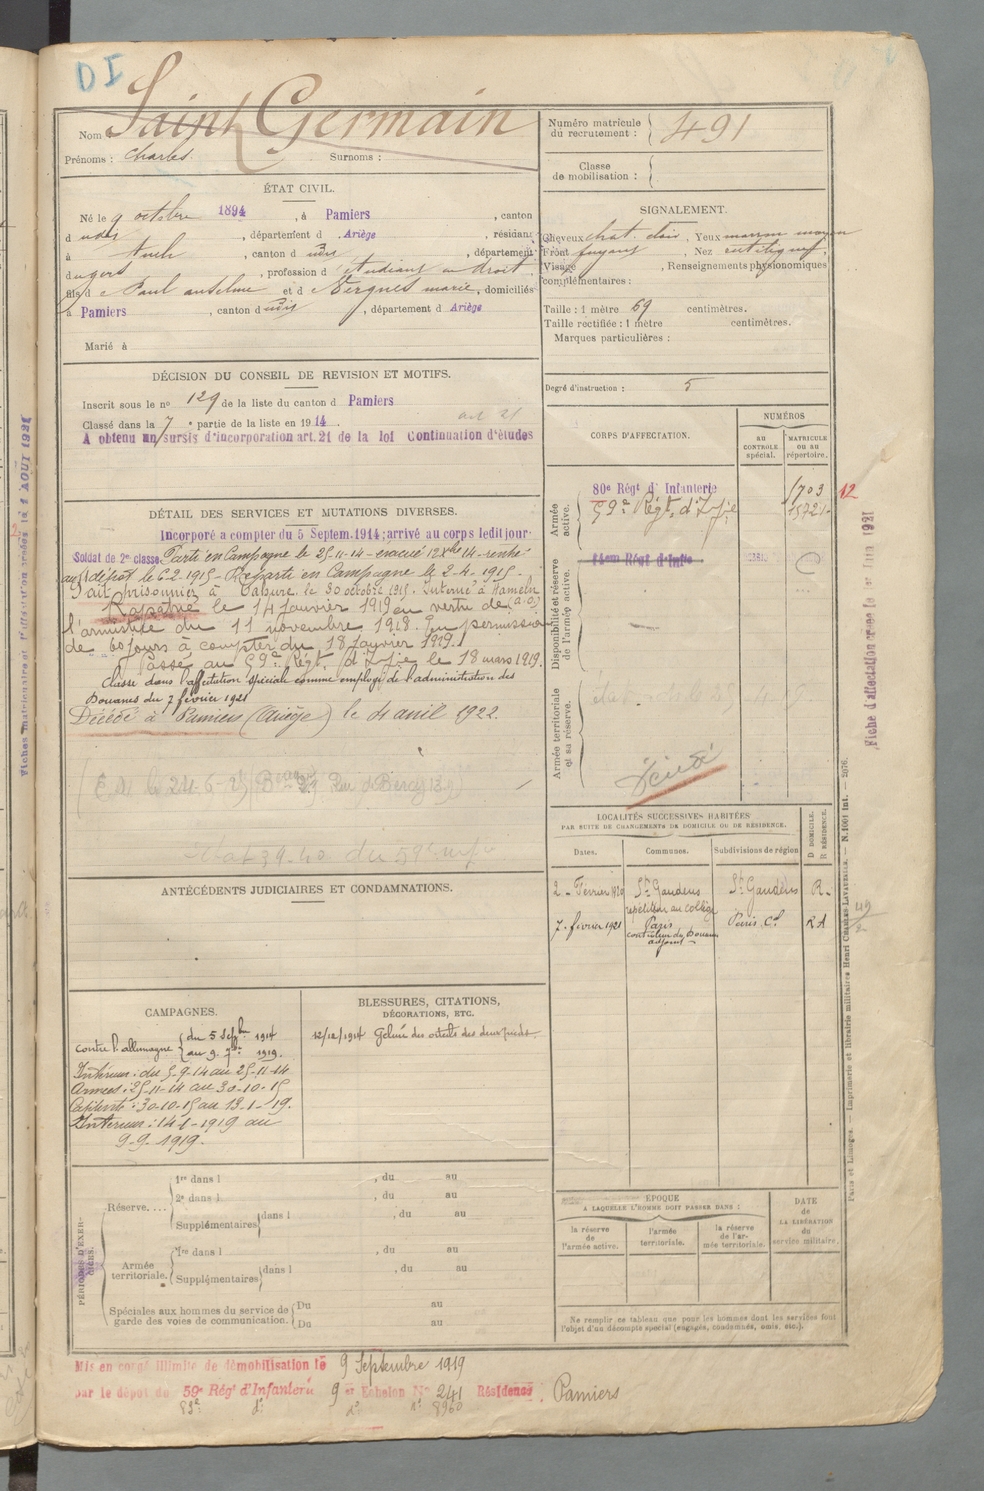 DI
Nom : Saint Germain
Prénoms : Charles. Surnoms :
Numéro matricule du recrutement : 491
Classe de mobilisation :
ÉTAT CIVIL.
Né le 9 octobre 1894, à Pamiers, canton
d udis, département d Ariège, résidant
à Auch, canton d udis, département
du gers, profession d étudiant en droit
fils d e Paul anselme et d e Vergnes marie, domiciliés
à Pamiers, canton d udis, département d Ariège
Marié à
SIGNALEMENT.
Cheveux chat. clair, Yeux marron moyen
Front fuyant, Nez rectiligne
Visage , Renseignements physionomiques
complémentaires :
Taille : 1 mètre 69 centimètres.
Taille rectifiée : 1 mètre centimètres.
Marques particulières :
Degré d'instruction : 5
DÉCISION DU CONSEIL DE REVISION ET MOTIFS.
Inscrit sous le no 129 de la liste du canton d Pamiers
art 21
Classé dans la 7 e partie de la liste en 1914.
A obtenu un sursis d'incorporation art. 21 de la loi Continuation d'études
DÉTAIL DES SERVICES ET MUTATIONS DIVERSES.
Incorporé a compter du 5 Septem. 1914; arrivé au corps ledit jour
Soldat de 2e classe Parti en Campagne le 25-11-14 - évacué 12 Xbre 14 - rentré
au dépôt le 6-2-1915 - Reparti en Campagne le 2-4-1915 -
Fait prisonnier à Tahure, le 30 octobre 1915. Interné à Hameln
Rapatrié le 14 Janvier 1919 en vertu de
l'armistice du 11 novembre 1918. En permission
de 60 jours à compter du 18 Janvier 1919.
Passé au 59e Régt d'Infie le 18 mars 1919.
Classé dans l'affectation spéciale comme employé de l'administration des
Douanes du 7 février 1921
Décédé à Pamiers (Ariège) le 4 avril 1922.
CORPS D'AFFECTATION.
NUMÉROS
AU CONTROLE spécial.
MATRICULE OU AU répertoire.
Armée active.
80e Régt d'Infanterie 1703
59e Régt d'Infie 1572
12
Disponibilité et réserve de l'armée active.
Armée territoriale et sa réserve.
Décédé
LOCALITÉS SUCCESSIVES HABITÉES
PAR SUITE DE CHANGEMENTS DE DOMICILE OU DE RÉSIDENCE.
Dates. Communes. Subdivisions de région
D DOMICILE. R RÉSIDENCE.
2 - Février 1920 St Gaudens St Gaudens R.
répétiteur au collège
7. février 1921 Paris Paris Cal RA
controleur des Douanes
adjoint -
ANTÉCÉDENTS JUDICIAIRES ET CONDAMNATIONS.
CAMPAGNES.
contre l'allemagne du 5 Septbre 1914
au 9. 7bre 1919.
Intérieur : du 5-9-14 au 25-11-14
Armées : 25-11-14 au 30-10-15
Captivité : 30-10-15 au 13-1-19.
Intérieur : 14-1-1919 au
9-9-1919.
BLESSURES, CITATIONS, DÉCORATIONS, ETC.
12/12/1914 Gelure des orteils des deux pieds.
PÉRIODES D'EXERCICES.
Réserve.... 1re dans l , du au
2e dans l , du au
Supplémentaires dans l , du au
Armée territoriale. 1re dans l , du au
Supplémentaires dans l , du au
Spéciales aux hommes du service de garde des voies de communication. Du au
Du au
ÉPOQUE
A LAQUELLE L'HOMME DOIT PASSER DANS :
la réserve de l'armée active.
l'armée territoriale.
la réserve de l'armée territoriale.
DATE de LA LIBÉRATION du service militaire.
Ne remplir ce tableau que pour les hommes dont les services font
l'objet d'un décompte spécial (engagés, condamnés, omis, etc.).
Mis en congé illimité de démobilisation le 9 Septembre 1919
par le dépôt du 59e Régt d'Infanterie 9e Echelon No 241 Résidence Pamiers
Paris et Limoges. — Imprimerie et librairie militaires Henri CHARLES-LAVAUZELLE. — N. 1001 int. — 2676.